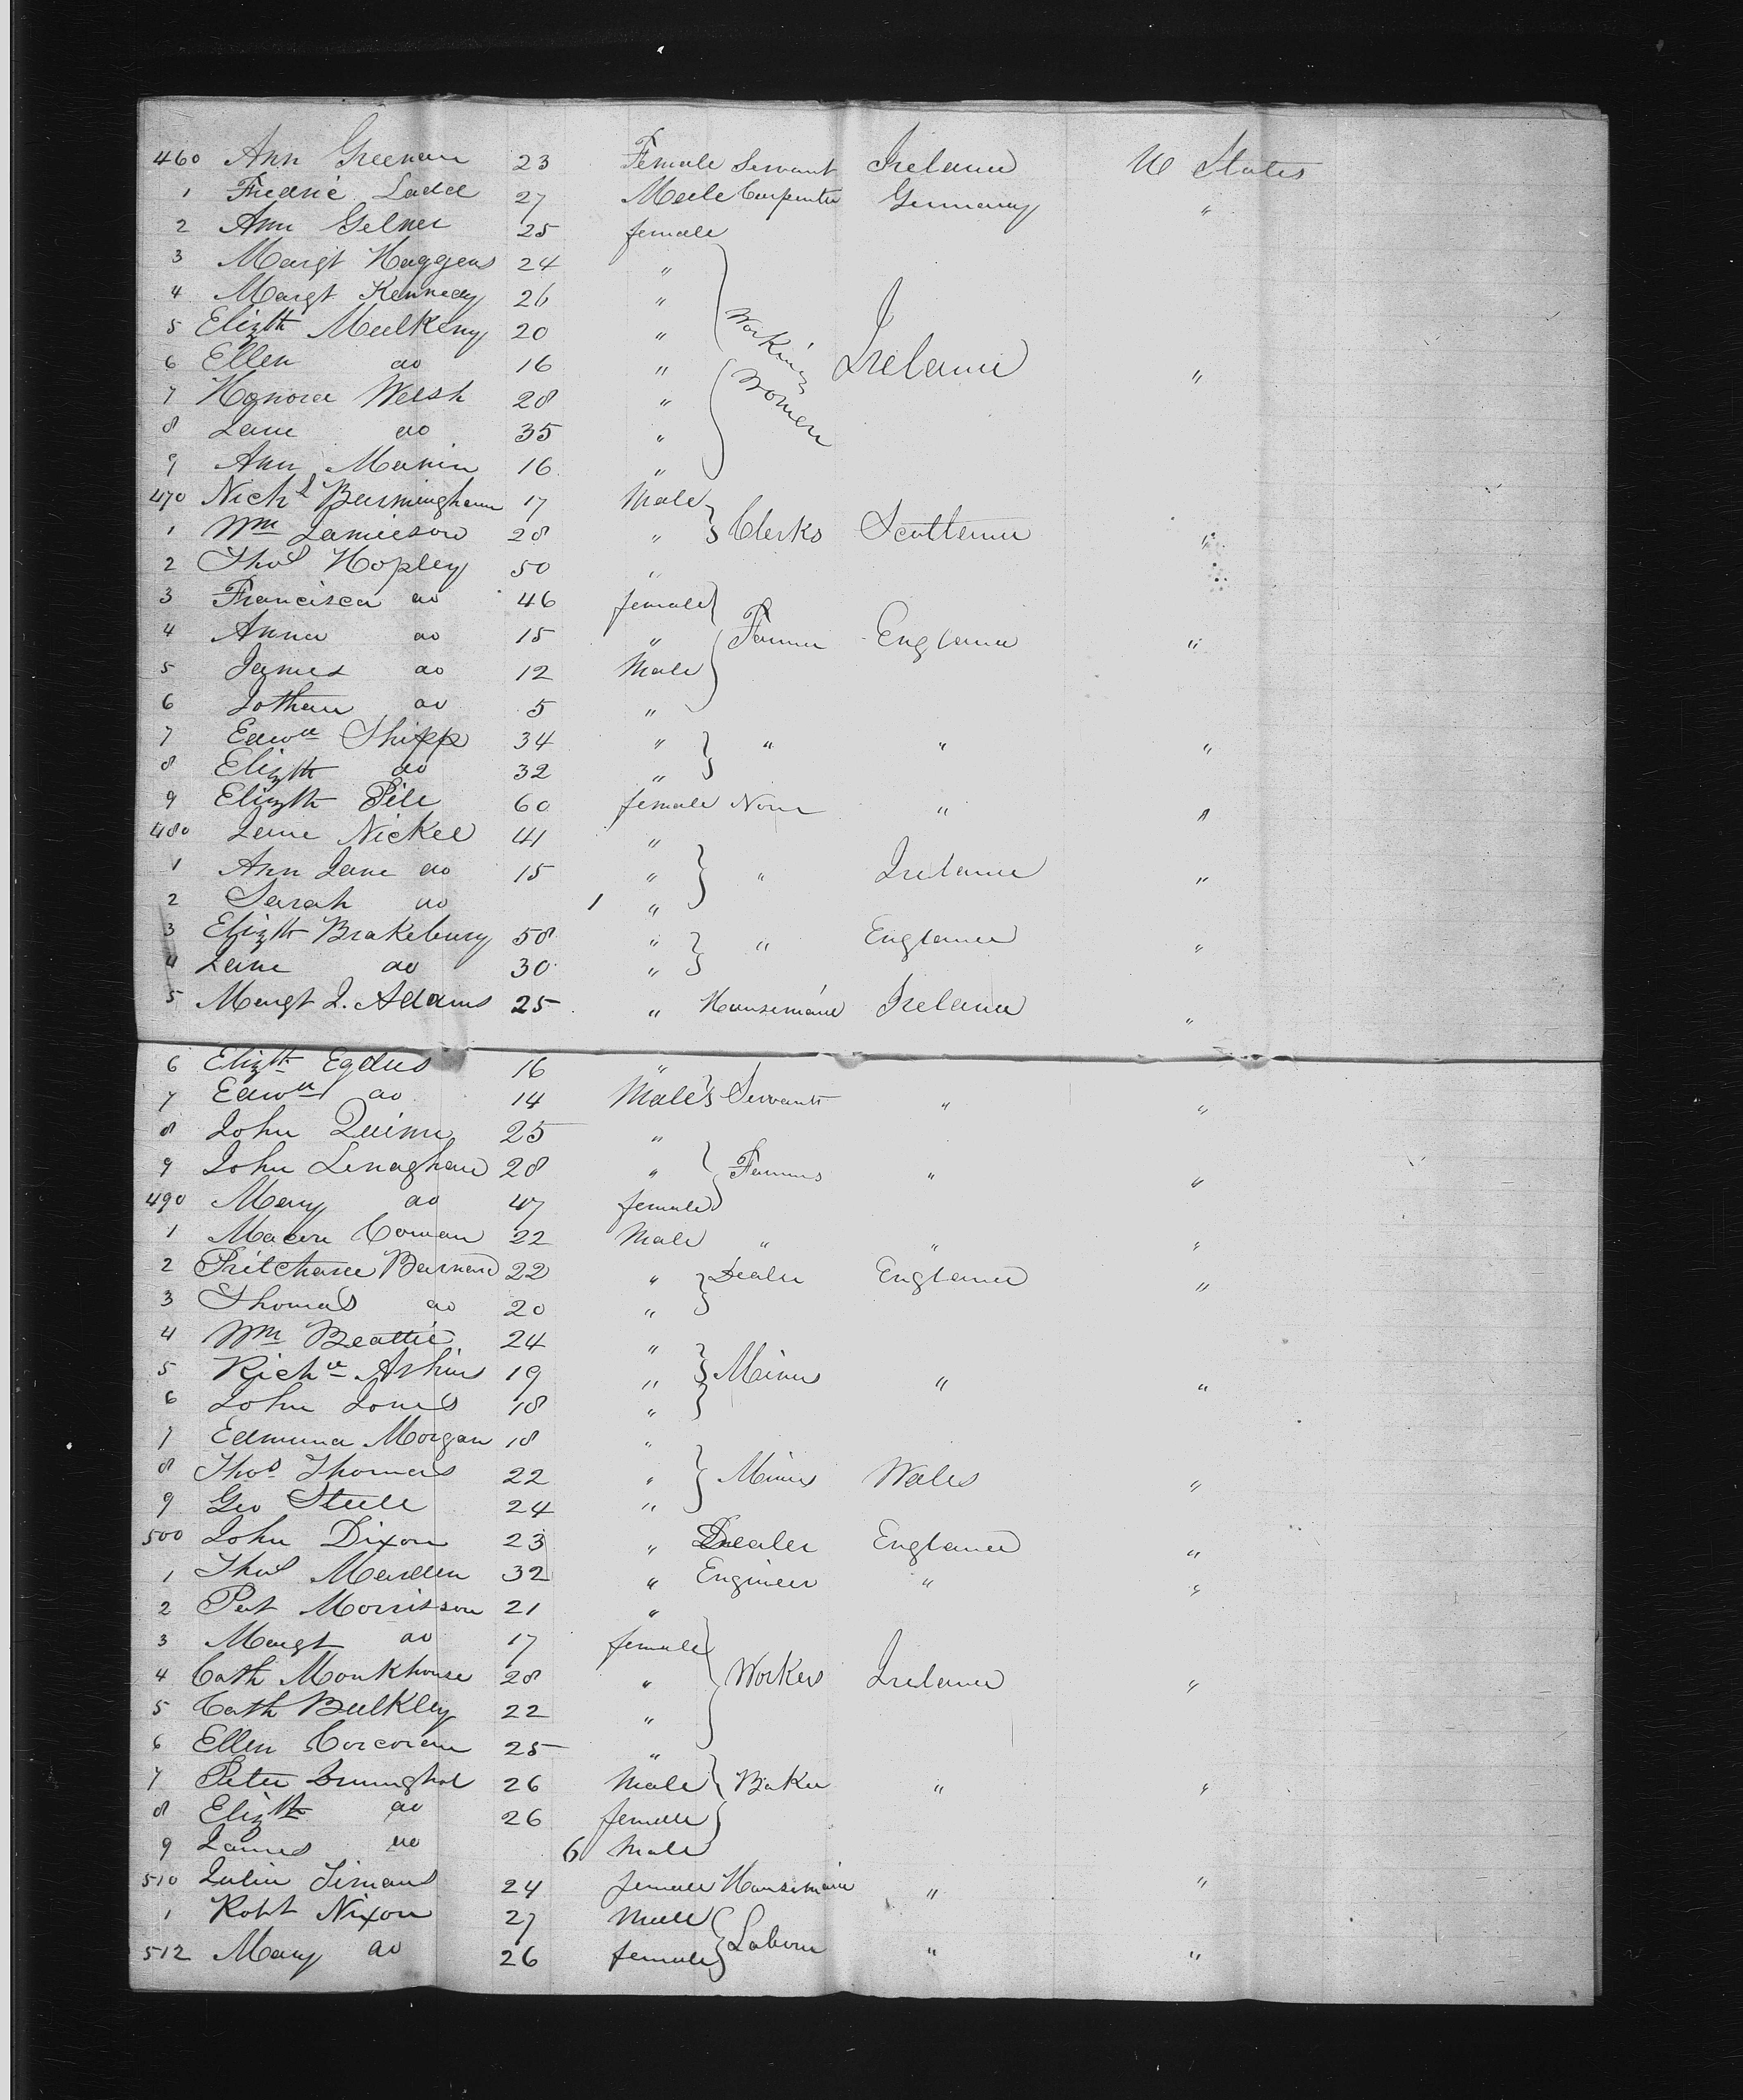 460 Ann Greenan 23 Female Servant Ireland U States
1 Fredric Ladd 27 Male Carpenter Germany "
2 Ann Gelner 25 female
3 Margt Haggens 24 "
4 Margt Kennedy 26 "
5 Elizth Mulkeny 20 " Working
6 Ellen do 16 " Women Ireland "
7 Honora Welsh 28 "
8 Jane do 35 "
9 Ann Manin 16 "
470 Nichs Burmingham 17 Male
1 Wm Jamieson 28 " Clerks Scotland "
2 Thos Hopley 50 "
3 Francisca do 46 female
4 Anna do 15 " Farmer England "
5 James do 12 Male
6 Jotham do 5 "
7 Edwd Shipp 34 " " " "
8 Elizth do 32 "
9 Elizth Pile 60 female None " "
480 Jane Nickel 41 "
1 Ann Jane do 15 " " Ireland "
2 Sarah do 1 "
3 Elizth Brakebury 58 " " England "
4 Jane do 30 "
5 Margt J. Adams 25 " Housemaid Ireland "
6 Elizth 16 "
7 Edwd do 14 Male Servants " "
8 John Quinn 25 "
9 John Lenaghan 28 " Farmers " "
490 Mary do 47 female
1 Coman 22 Male " " "
2 Pritchard Barnard 22 " Dealer England "
3 Thomas do 20 "
4 Wm Beattie 24 "
5 Richd Askins 19 " Miners " "
6 John Jones 18 "
7 Edmund Morgan 18 "
8 Thos Thomas 22 " Miners Wales "
9 Geo Steele 24 "
500 John Dixon 23 " Dealer England "
1 Thos Marden 32 " Engineer " "
2 Pat Morrisson 21 "
3 Margt do 17 female
4 Cath Monkhouse 28 " Workers Ireland "
5 Cath Bulkley 22 "
6 Ellen Corcoran 25 "
7 Peter 26 Male Baker " "
8 Elizth do 26 female
9 James do 6 Male
510 Julia Simans 24 female Housemaid " "
1 Robt Nixon 27 Male
512 Mary do 26 female Laborer " "